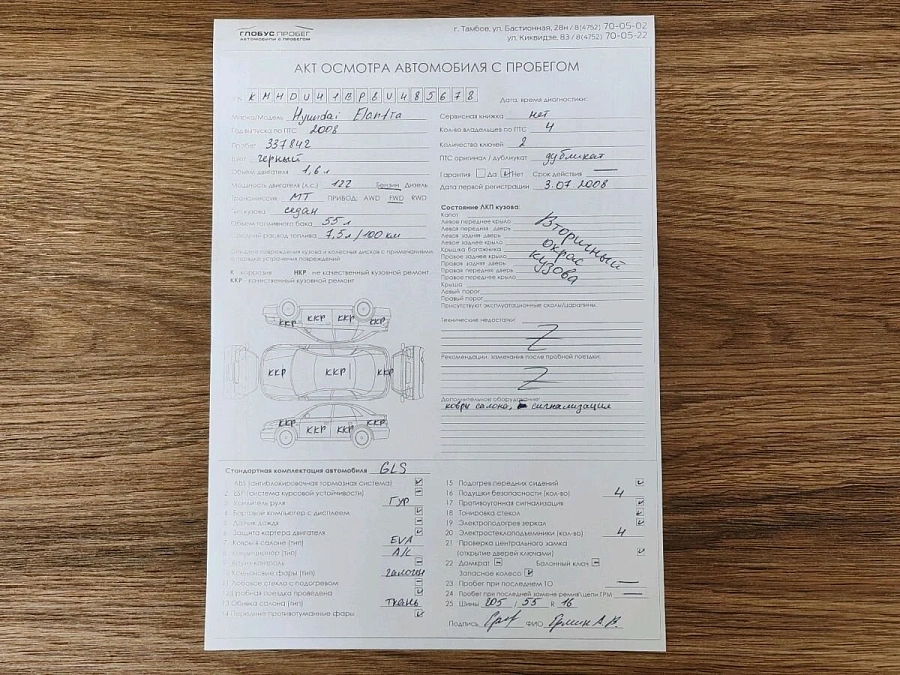 ГЛОБУС ПРОБЕГ
АВТОМОБИЛИ С ПРОБЕГОМ
г. Тамбов, ул. Бастионная, 28н / 8(4752) 70-05-02
ул. Киквидзе, 83 / 8(4752) 70-05-22
АКТ ОСМОТРА АВТОМОБИЛЯ С ПРОБЕГОМ
KMHDU41BP8U485678
Марка/Модель Hyundai Elantra
Год выпуска по ПТС 2008
Пробег 337842
Цвет черный
Объем двигателя 1,6 л
Мощность двигателя (л.с.) 122 Бензин Дизель
Трансмиссия МТ ПРИВОД: AWD FWD RWD
Тип кузова седан
Объем топливного бака 55 л
Средний расход топлива 7,5 л / 100 км
повреждения кузова и колесных дисков с примечаниями
о порядке устранения повреждений
К - коррозия НКР - не качественный кузовной ремонт
ККР - качественный кузовной ремонт
ККР ККР ККР ККР
ККР ККР ККР
ККР ККР ККР ККР
Дата, время диагностики:
Сервисная книжка нет
Кол-во владельцев по ПТС 4
Количество ключей 2
ПТС оригинал / дубликат дубликат
Гарантия Да Нет Срок действия —
Дата первой регистрации 3.07 2008
Состояние ЛКП кузова:
Капот
Левое переднее крыло
Левая передняя дверь
Левая задняя дверь
Левое заднее крыло
Крышка багажника
Правое заднее крыло
Правая задняя дверь
Правая передняя дверь
Правое переднее крыло
Крыша
Левый порог
Правый порог
Вторичный
окрас
кузова
Присутствуют эксплуатационные сколы/царапины.
Технические недостатки:
Z
Рекомендации, замечания после пробной поездки:
Z
Дополнительное оборудование:
ковры салона, сигнализация
Стандартная комплектация автомобиля GLS
1 ABS (антиблокировочная тормозная система)
2 ESP (система курсовой устойчивости)
3 Усилитель руля ГУР
4 Бортовой компьютер с дисплеем
5 Датчик дождя
6 Защита картера двигателя
7 Ковры в салоне (тип) EVA
8 Кондиционер (тип) A/C
9 Круиз-контроль
10 фары (тип) галоген
11 Лобовое стекло с подогревом
12 Пробная поездка проведена
13 Обивка салона (тип) ткань
14 Передние противотуманные фары
15 Подогрев передних сидений
16 Подушки безопасности (кол-во) 4
17 Противоугонная сигнализация
18 Тонировка стекол
19 Электроподогрев зеркал
20 Электростеклоподъемники (кол-во) 4
21 Проверка центрального замка
(открытие дверей ключами)
22 Домкрат Балонный ключ
Запасное колесо
23 Пробег при последнем ТО —
24 Пробег при последней замене ремня\цепи ГРМ —
25 Шины 205 / 55 R 16
Подпись ФИО